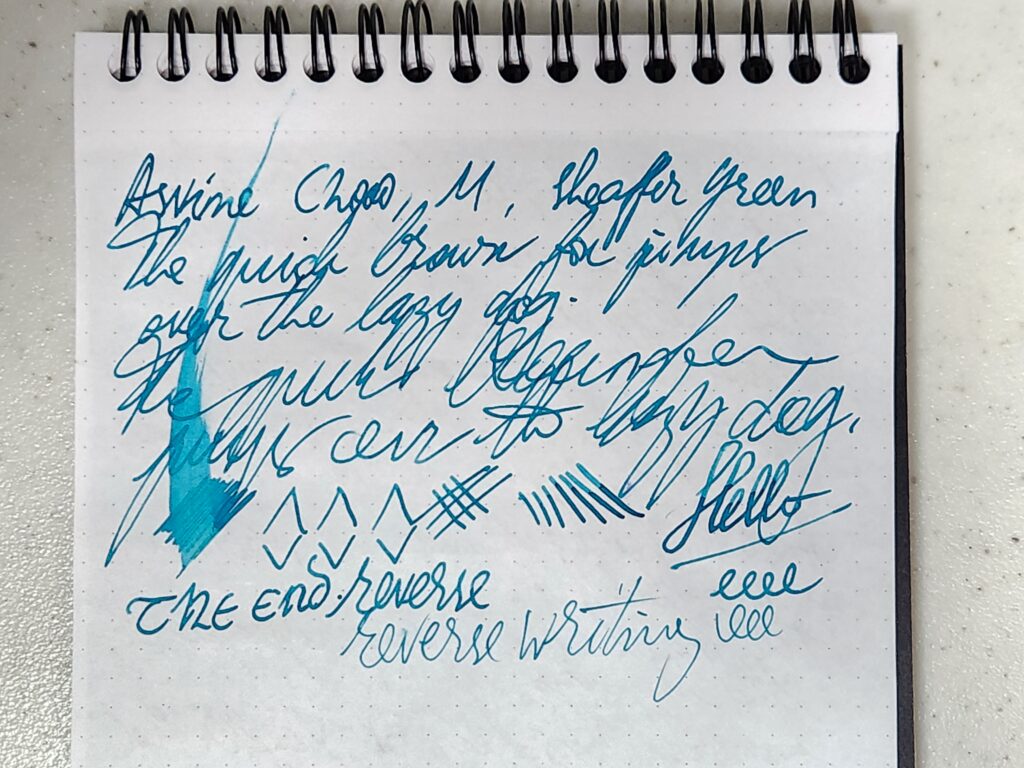 Asvine Chqo, M, Sheaffer green
The quick brown fox jumps
over the lazy dog.
The quick
jumps over the lazy dog.
Hello
THE END. reverse
eeee
reverse writing eee